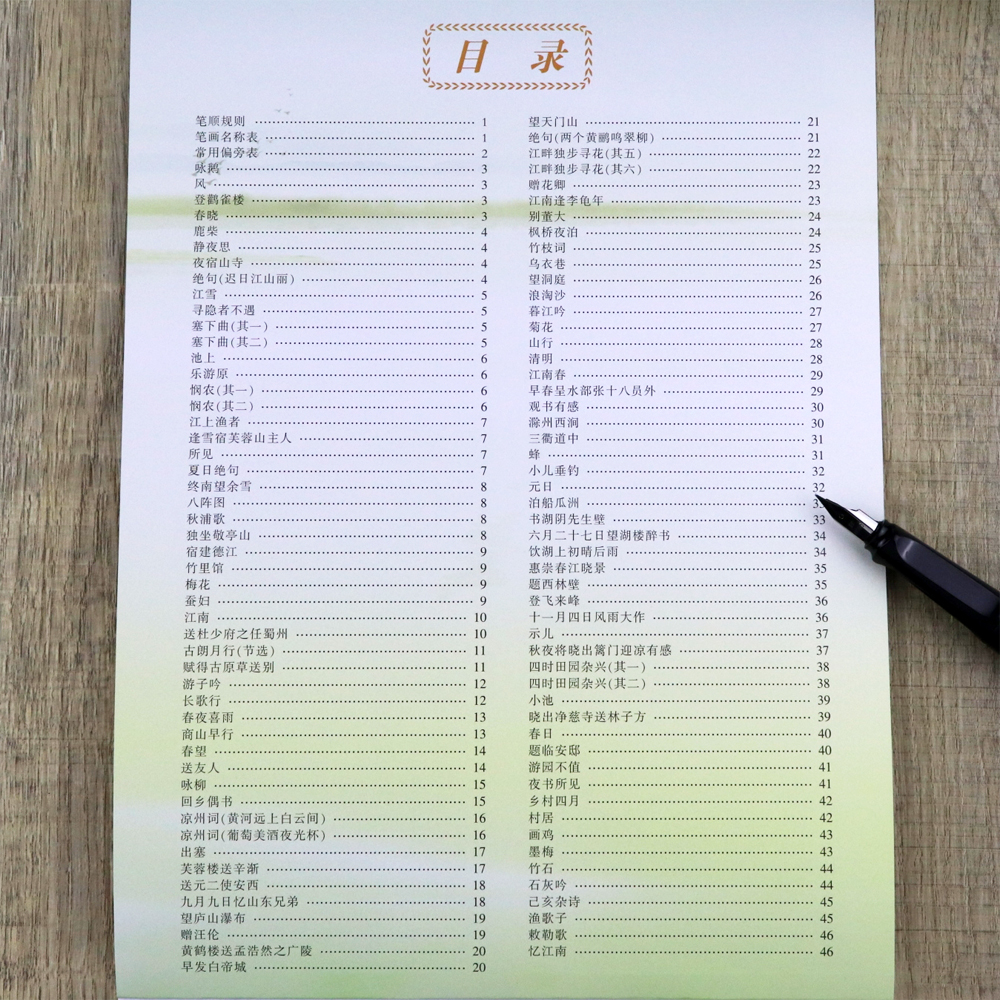 目 录
笔顺规则 1
笔画名称表 1
常用偏旁表 2
咏鹅 3
风 3
登鹳雀楼 3
春晓 3
鹿柴 4
静夜思 4
夜宿山寺 4
绝句(迟日江山丽) 4
江雪 5
寻隐者不遇 5
塞下曲(其一) 5
塞下曲(其二) 5
池上 6
乐游原 6
悯农(其一) 6
悯农(其二) 6
江上渔者 7
逢雪宿芙蓉山主人 7
所见 7
夏日绝句 7
终南望余雪 8
八阵图 8
秋浦歌 8
独坐敬亭山 8
宿建德江 9
竹里馆 9
梅花 9
蚕妇 9
江南 10
送杜少府之任蜀州 10
古朗月行(节选) 11
赋得古原草送别 11
游子吟 12
长歌行 12
春夜喜雨 13
商山早行 13
春望 14
送友人 14
咏柳 15
回乡偶书 15
凉州词(黄河远上白云间) 16
凉州词(葡萄美酒夜光杯) 16
出塞 17
芙蓉楼送辛渐 17
送元二使安西 18
九月九日忆山东兄弟 18
望庐山瀑布 19
赠汪伦 19
黄鹤楼送孟浩然之广陵 20
早发白帝城 20
望天门山 21
绝句(两个黄鹂鸣翠柳) 21
江畔独步寻花(其五) 22
江畔独步寻花(其六) 22
赠花卿 23
江南逢李龟年 23
别董大 24
枫桥夜泊 24
竹枝词 25
乌衣巷 25
望洞庭 26
浪淘沙 26
暮江吟 27
菊花 27
山行 28
清明 28
江南春 29
早春呈水部张十八员外 29
观书有感 30
滁州西涧 30
三衢道中 31
蜂 31
小儿垂钓 32
元日 32
泊船瓜洲
书湖阴先生壁 33
六月二十七日望湖楼醉书 34
饮湖上初晴后雨 34
惠崇春江晓景 35
题西林壁 35
登飞来峰 36
十一月四日风雨大作 36
示儿 37
秋夜将晓出篱门迎凉有感 37
四时田园杂兴(其一) 38
四时田园杂兴(其二) 38
小池 39
晓出净慈寺送林子方 39
春日 40
题临安邸 40
游园不值 41
夜书所见 41
乡村四月 42
村居 42
画鸡 43
墨梅 43
竹石 44
石灰吟 44
己亥杂诗 45
渔歌子 45
敕勒歌 46
忆江南 46